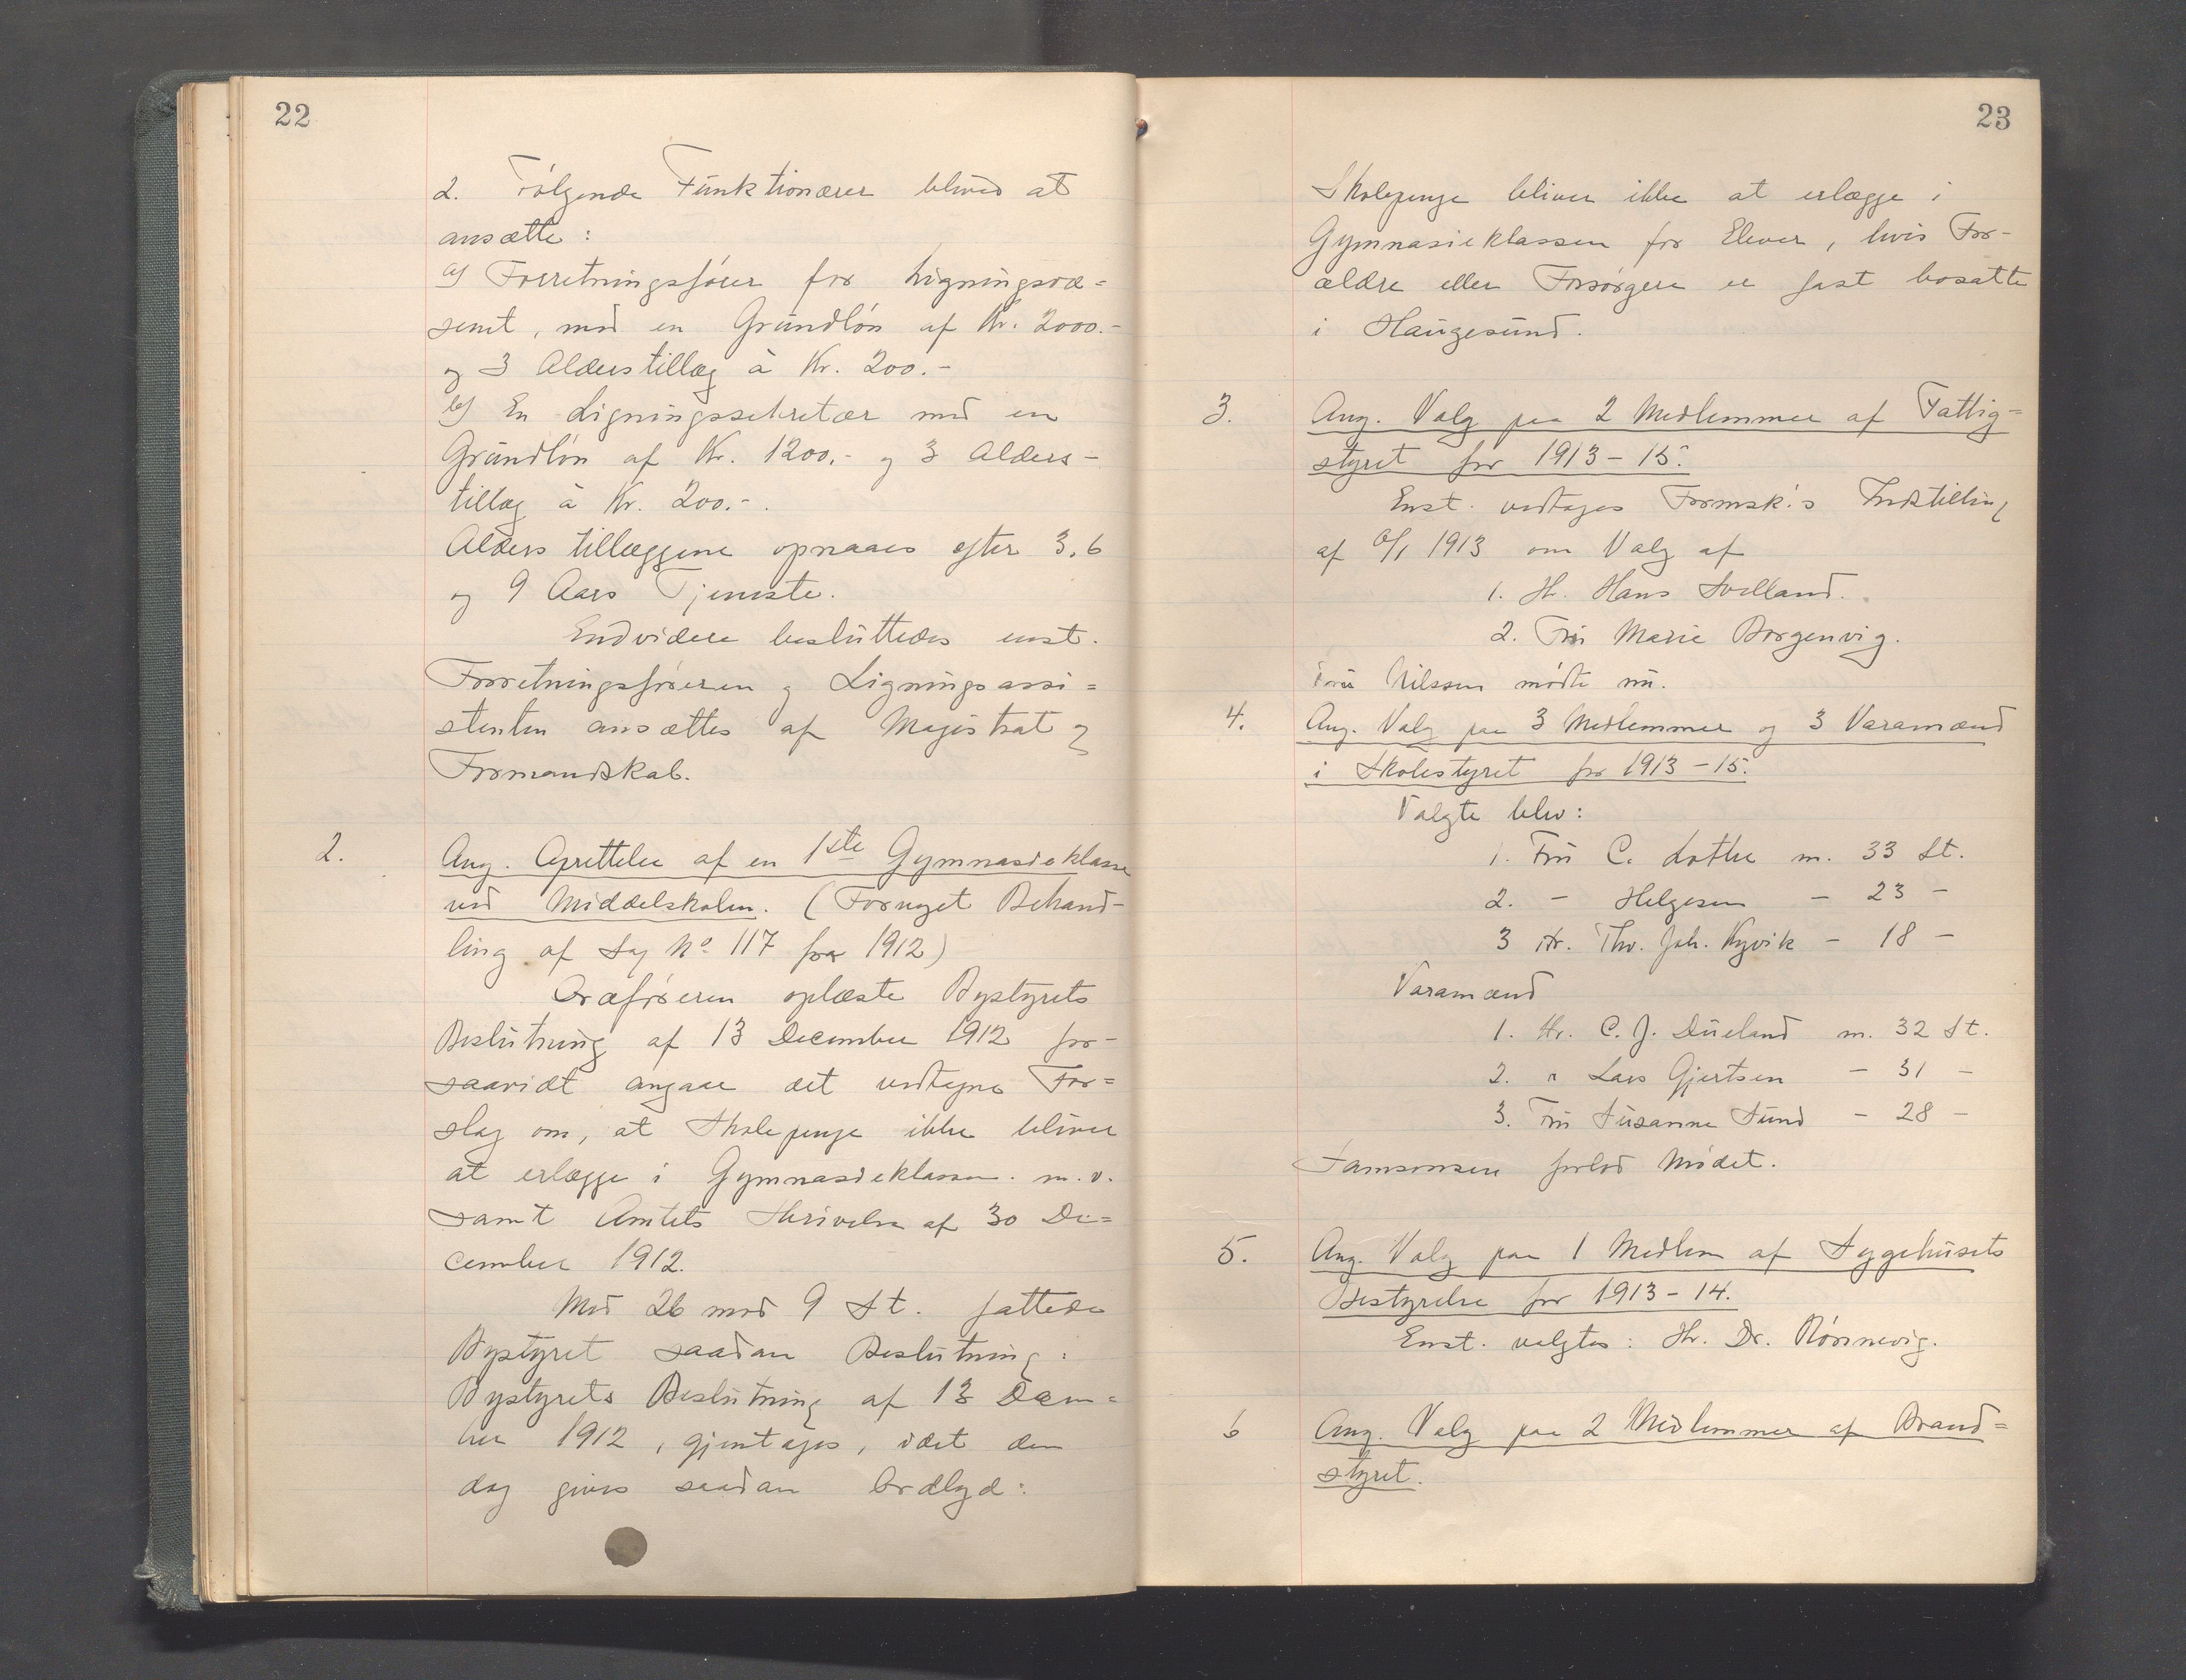 22
2. Følgende Funktionærer bliver at
ansætte:
a) Forretningsfører for Ligningsvæ=
senet, med en Grundløn af Kr. 2000.-
og 3 Alderstillæg à Kr. 200.-
b) En Ligningssekretær med en
Grundløn af Kr. 1200.- og 3 Alders-
tillæg à Kr. 200.-.
Alderstillæggene opnaaes efter 3, 6
og 9 Aars Tjeneste.
Endvidere besluttedes enst.
Forretningsføreren og Ligningsassi=
stenten ansættes af Magistrat og
Formandskab.
2.
Ang. Oprettelse af en 1ste Gymnasieklasse
ved Middelskolen. (Fornyet Behand-
ling af Sag No. 117 for 1912)
Ordføreren oplæste Bystyrets
Beslutning af 13 December 1912 for-
saavidt angaar det vedtagne For=
slag om, at Skolepenge ikke bliver
at erlægge i Gymnasieklassen. m. v.
samt Amtets Skrivelse af 30 De=
cember 1912.
Med 26 mod 9 St. fattede
Bystyret saadan Beslutning:
Bystyrets Beslutning af 13 Decem=
ber 1912, gjentages, idet den
dog gives saadan Ordlyd:
23
Skolepenge bliver ikke at erlægge i
Gymnasieklassen for Elever, hvis For-
ældre eller Forsørgere er fast bosatte
i Haugesund.
3.
Ang. Valg paa 2 Medlemmer af Fattig=
styret for 1913-15.
Enst. vedtages Formsk.'s Indstilling
af 1913 om Valg af
1. H. Hans Svelland.
2. Fru Marie Borgenvig.
Fru Nilssen mødte nu.
4.
Ang. Valg paa 3 Medlemmer og 3 Varamænd
i Skolestyret for 1913-15.
Valgte blev:
1. Fru C. Lothe m. 33 St.
2. - Helgesen - 23 -
3 Hr. Thv. Joh. Kyvik - 18 -
Varamænd
1. Hr. C. J. Dueland m. 32 St.
2. " Lars Gjertsen - 31 -
3. Fru Susanne Sund - 28 -
Samsonsen forlod Mødet.
5.
Ang. Valg paa 1 Medlem af Sygehusets
Bestyrelse for 1913-14.
Enst. valgtes: Hr. Dr. Rønnevig.
6
Ang. Valg paa 2 Medlemmer af Brand=
styret.